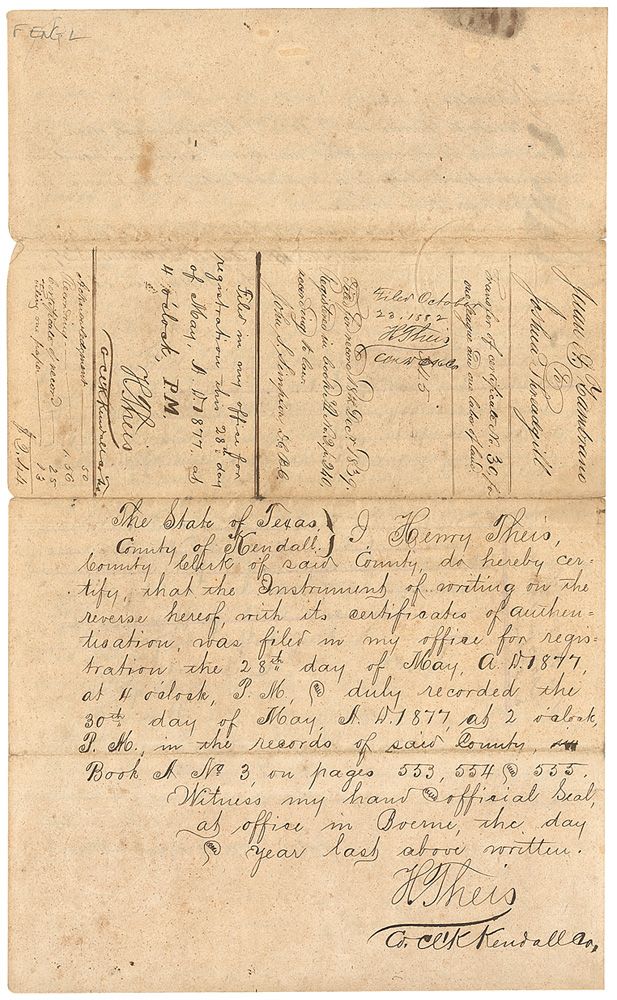 F ENG L
Juan A. Zambrano
to
Joshua Threadgill
Transfer of certificate No. 30, for
one league and one labor of land.
Filed October
23. 1882
H Theis
Filed for record 18th Decr 1839.
Registered in book A No 2, p 240,
according to law.
John S. Simpson
Filed in my office for
registration this 28th day
of May, A. D. 1877. at
4 o'clock, P.M.
H Theis
Co Clk Kendall Co
Acknowledgment 50
Recording 1.50
Certificate of record 25
Filing on paper 13
The State of Texas, }
County of Kendall. } I Henry Theis,
County Clerk of said County, do hereby cer-
tify, that the Instrument of writing on the
reverse hereof, with its certificates of authen-
tisation, was filed in my office for regis-
tration the 28th day of May, A. D. 1877,
at 4 o'clock, P. M., and duly recorded the
30th day of May, A. D. 1877, at 2 o'clock,
P. M., in the records of said County, in
Book A No 3, on pages 553, 554 and 555.
Witness my hand and official Seal,
at office in Boerne, the day
and year last above written.
H Theis
Co. Cl'k Kendall Co,